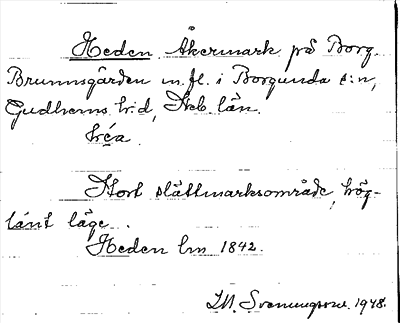 Heden Åkermark på Borg-
Brunnsgården m.fl. i Borgunda s:n,
Gudhems h:d, Skb. län.
héa
Stort slättmarksområde, hög-
länt läge.
Heden lm 1842.
I.M. Svenungsson. 1948.